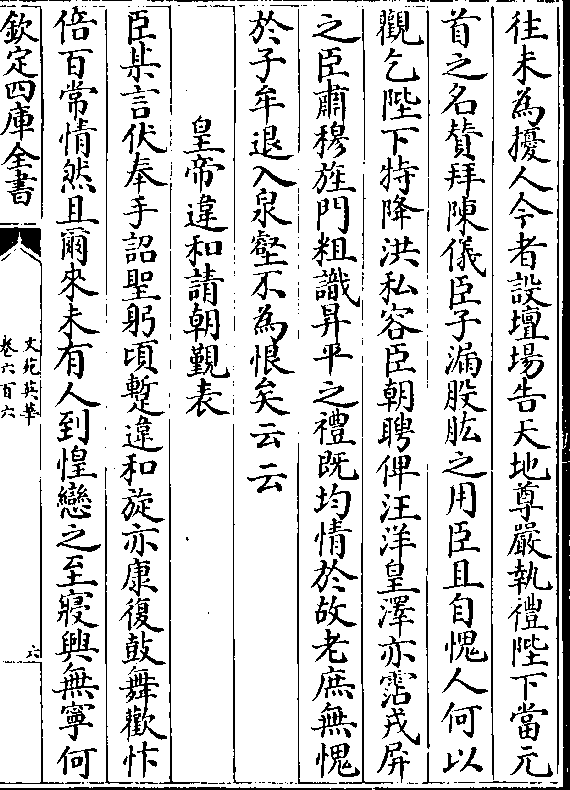 往未為擾人今者設壇場告天地尊嚴執禮陛下當元
首之名賛拜陳儀臣子漏股肱之用臣且自愧人何以
觀乞陛下特降洪私容臣朝聘俾汪洋皇澤亦霑戎屏
之臣肅穆旌門粗識昇平之禮既均情於故老庶無愧
於子牟退入泉壑不為恨矣云云
皇帝違和請朝覲表
臣某言伏奉手詔聖躬頃蹔違和旋亦康復鼓舞歡忭
倍百常情然且爾來未有人到惶戀之至寢興無寧何
欽定四庫全書
文苑英華
卷六百六
六